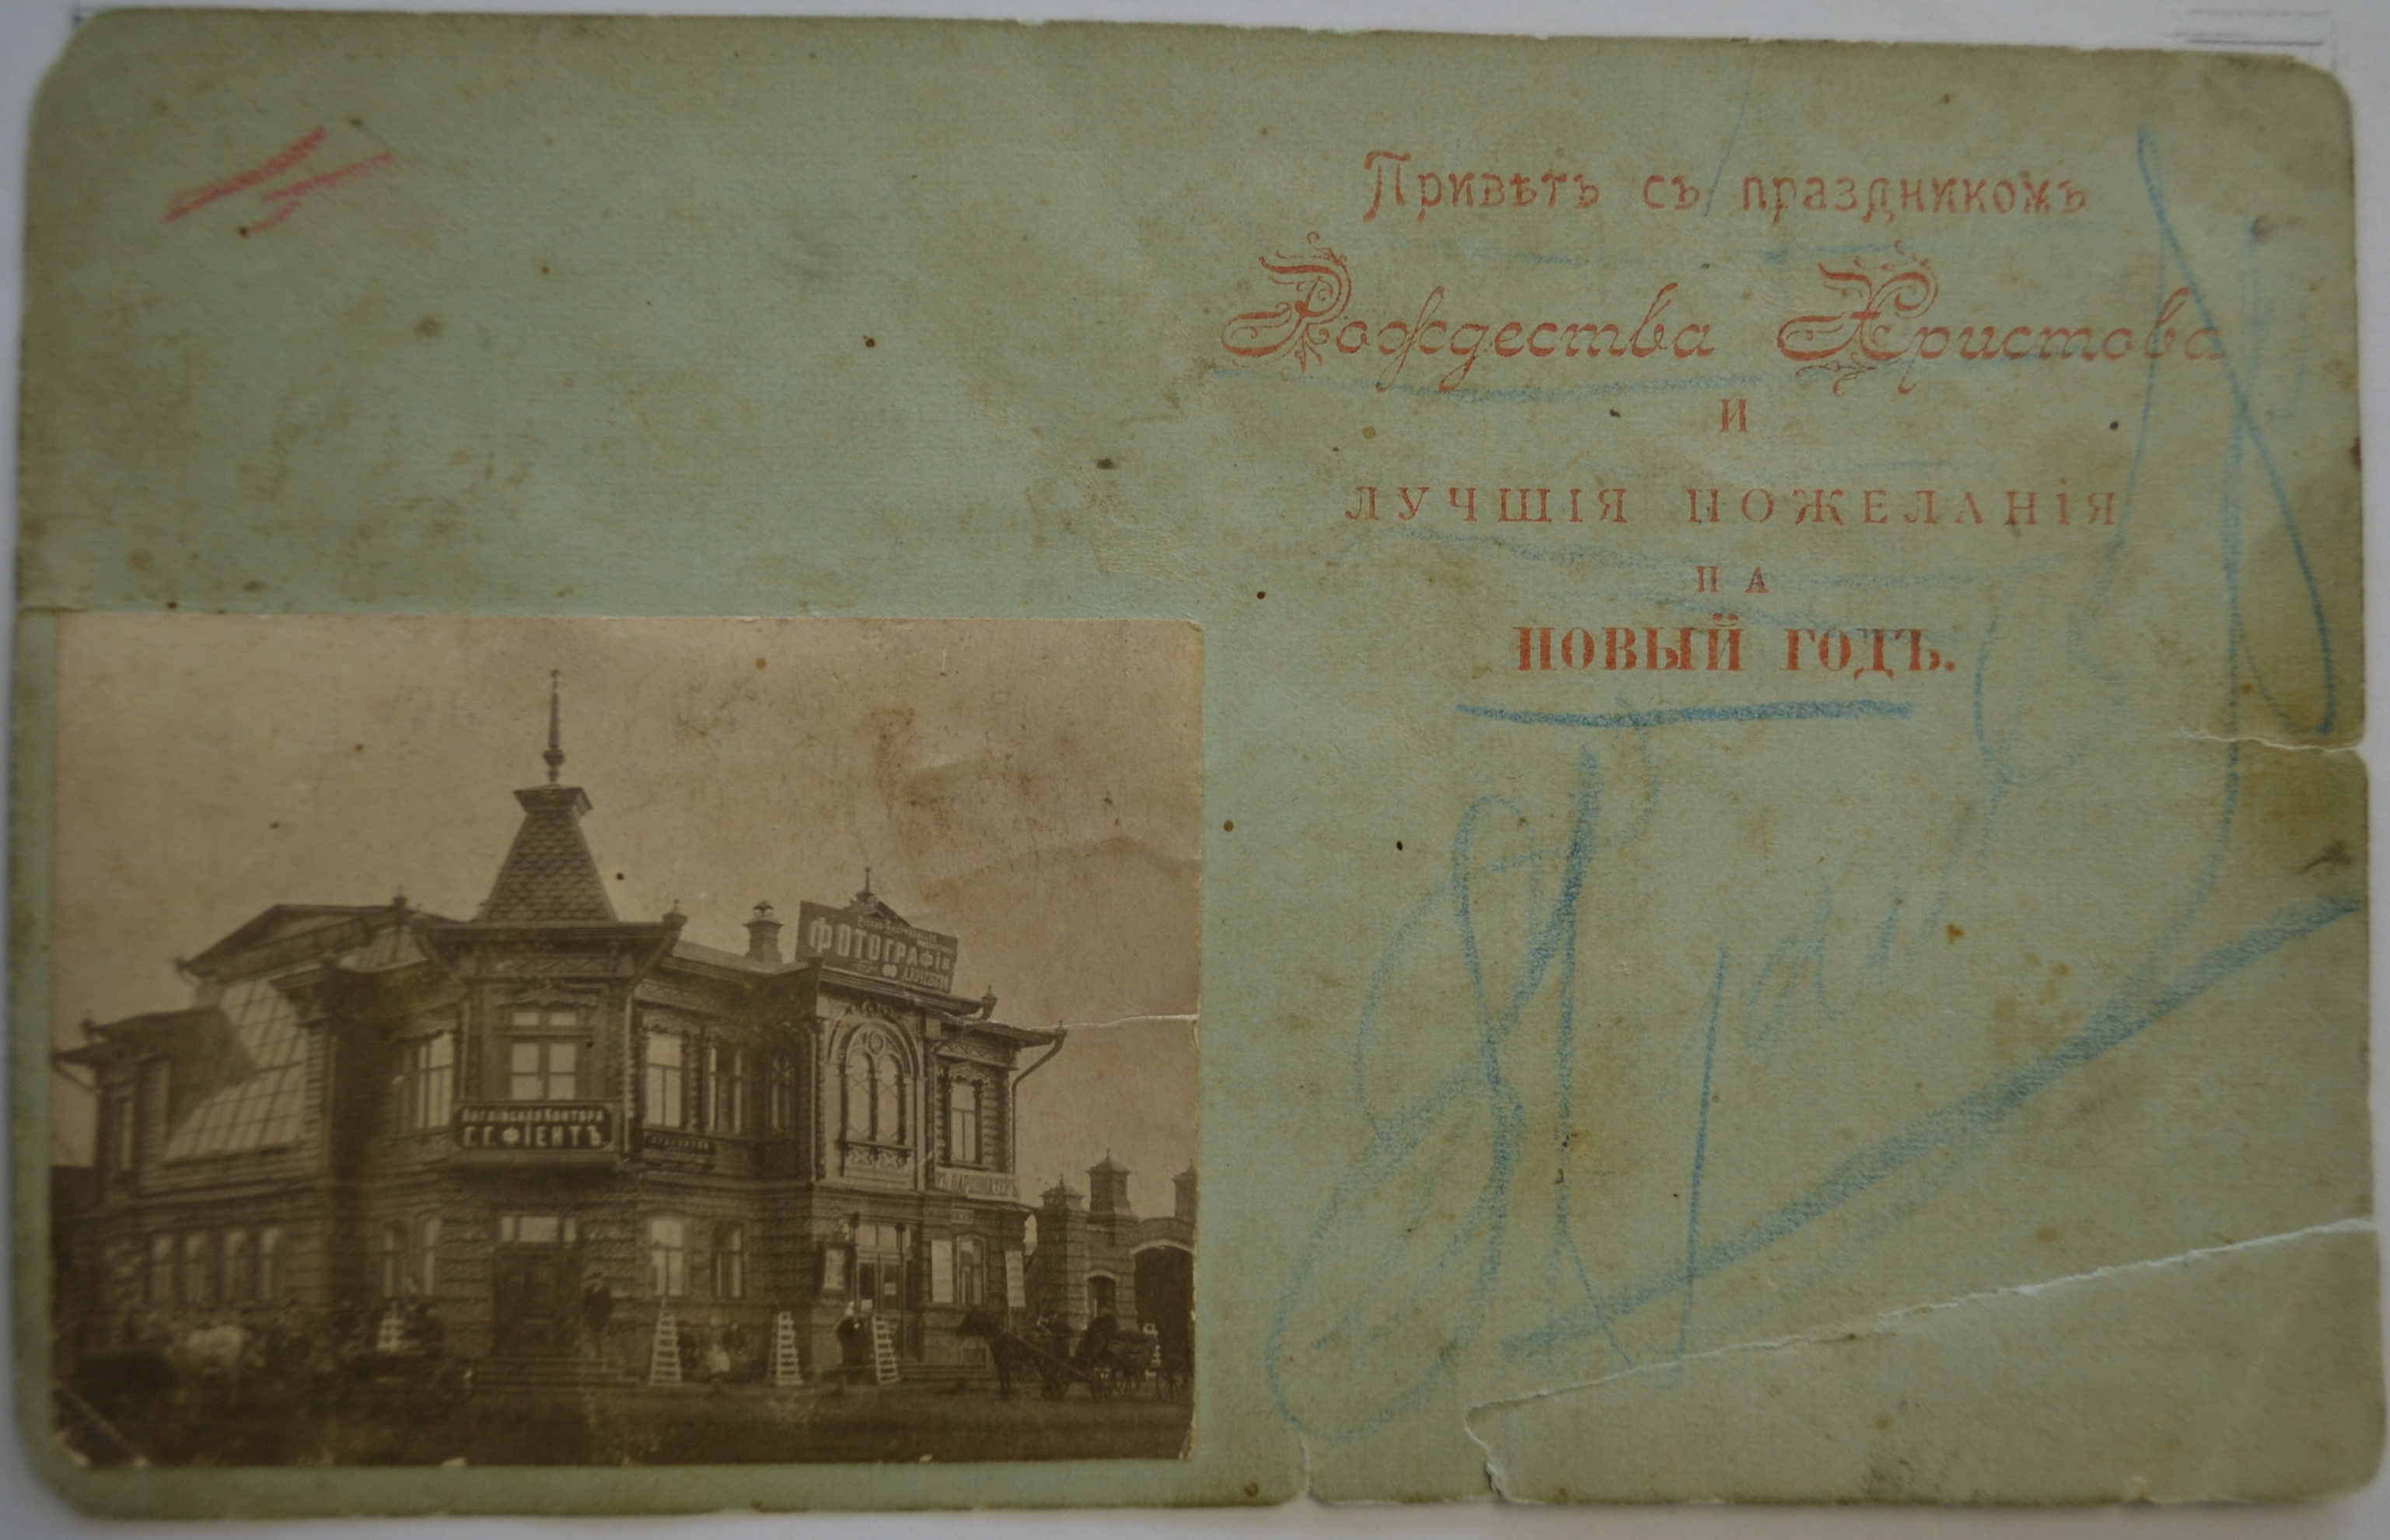 Привѣтъ съ праздникомъ
Рождества Христова
И
ЛУЧШІЯ ПОЖЕЛАНІЯ
НА
НОВЫЙ ГОДЪ.
ФОТОГРАФІЯ
АНГЛІЙСКАЯ КОНТОРА
Г.Г. ФІЕНТЪ.